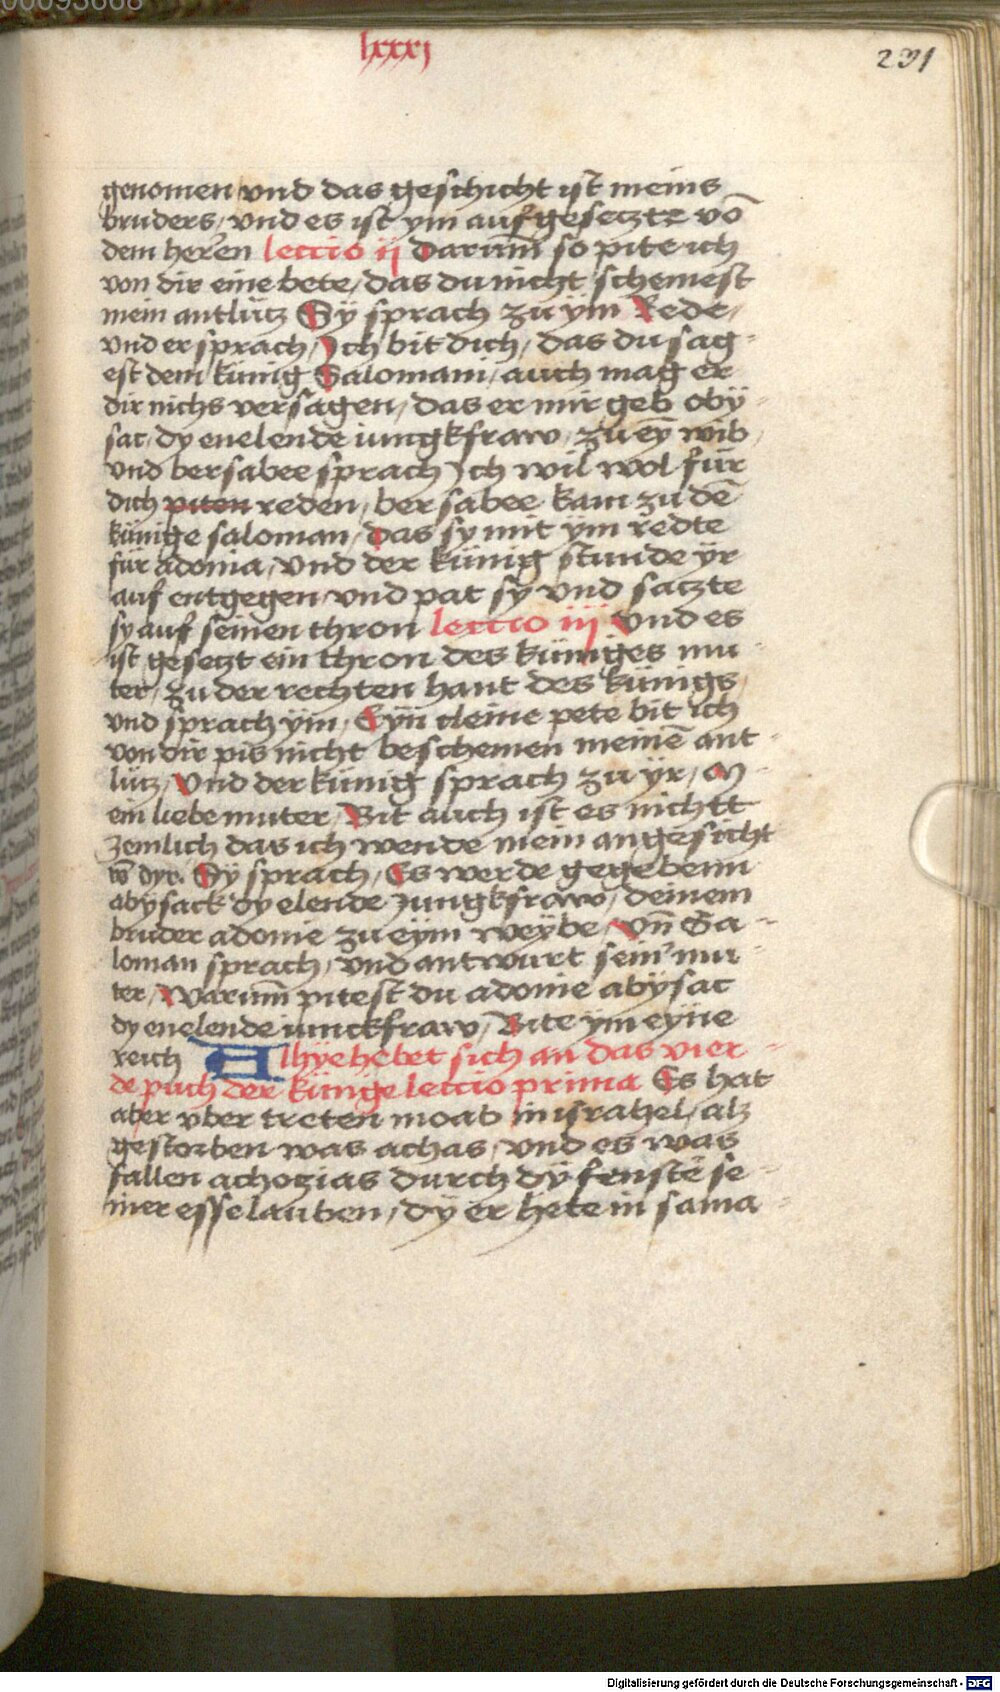 00093668
lxxxj
231
genomen vnd das geschicht ist meins
bruders, vnd es ist ym aufgesetzte vō
dem heren leccio ij Darum̄ so pite ich
von dir eine bete, das du nicht schemest
mein antlütz Sÿ sprach zu ÿm Rede,
vnd er sprach, Ich bit dich, das du sag-
est dem künig Salomani, auch mag er
dir nichs versagen, das er mir geb obÿ-
sac, dy enelende iungkfraw, zu eȳ wib,
vnd bersabee sprach Ich wil wol für
dich piten reden, bersabee kam zu dē
künige saloman, das sy mit ÿm redte
für adonia, vnd der künig stunde ÿr
auf entgegen vnd pat sy vnd saczte
sy auf seinen thron leccio iij Vnd es
ist gesetzt ein thron des küniges mu-
ter, zu der rechten hant des künigs,
vnd sprach ÿm, Eyn cleine pete bit ich
von dir pis nicht beschemen meinē ant-
lütz, Vnd der künig sprach zu ÿr, M-
ein liebe muter, Bit auch ist es nichtt
zemlich das ich wende mein angesicht
vō dyr. Sÿ sprach, Es werde gegebenn
abÿsack dy elende Jungkfraw, deinem
bruder adonie zu eÿm weÿbe, Vn̄ Sa-
loman sprach, vnd antwurt sein' mu-
ter, Warum̄ pitest du adonie abÿsac
dy enelende iunckfraw, Bite ÿm eÿne
reich Alhÿe hebet sich an das vier-
de puch der künige leccio prima Es hat
aber vber treten moab in israhel, alz
gestorben was achas, vnd es was
fallen achozias durch dÿ fenstē se-
iner esse lauben, dÿ er hete in sama-
Digitalisierung gefördert durch die Deutsche Forschungsgemeinschaft - DFG